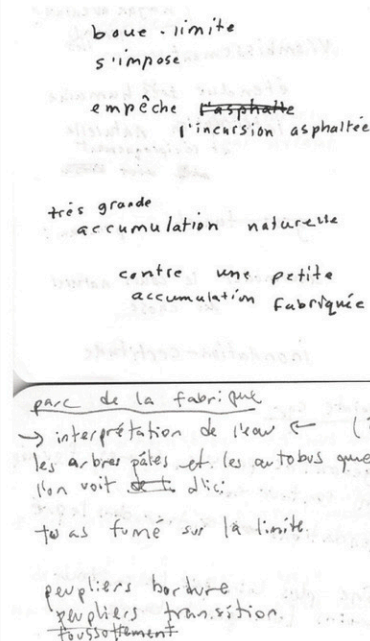 boue-limite
s'impose
empêche l'asphalte
l'incursion asphaltée
très grande
accumulation naturelle
contre une petite
accumulation fabriquée
parc de la fabrique
→ interprétation de l'eau ←
les arbres pâles et les autobus que
l'on voit d'ici
tu as fumé sur la limite.
peupliers bordure
peupliers transition
toussottement